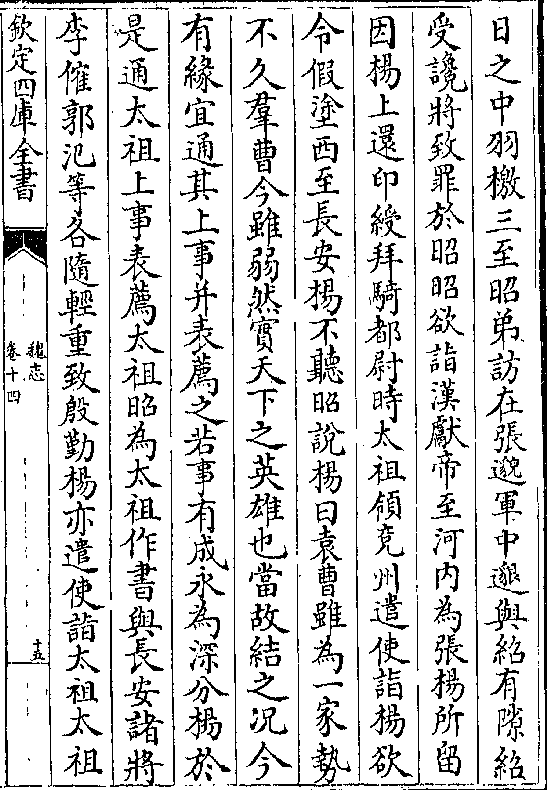 日之中羽檄三至昭弟訪在張邈軍中邈與紹有隙紹
受讒將致罪於昭昭欲詣漢獻帝至河内為張楊所留
因楊上還印綬拜騎都尉時太祖領兖州遣使詣楊欲
令假塗西至長安楊不聽昭說楊曰袁曹雖為一家勢
不久羣曹今雖弱然實天下之英雄也當故結之况今
有緣宜通其上事并表薦之若事有成永為深分楊於
是通太祖上事表薦太祖昭為太祖作書與長安諸將
李傕郭汜等各隨輕重致殷勤楊亦遣使詣太祖太祖
欽定四庫全書
魏志
卷十四
十五